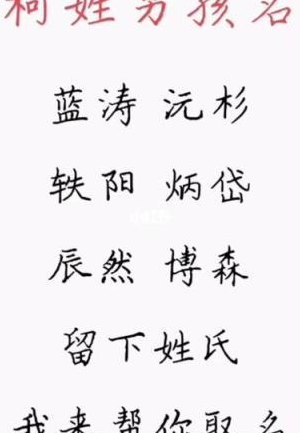 柯姓男孩名
蓝涛 沅杉
轶阳 炳岱
辰然 博森
留下姓氏
我来帮你取名